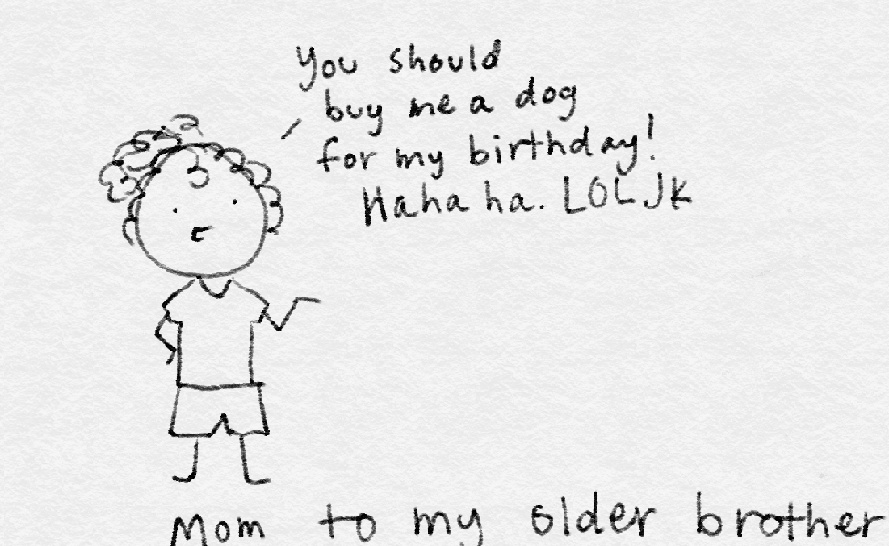 You should
buy me a dog
for my birthday!
Haha ha. LOL JK
Mom to my older brother